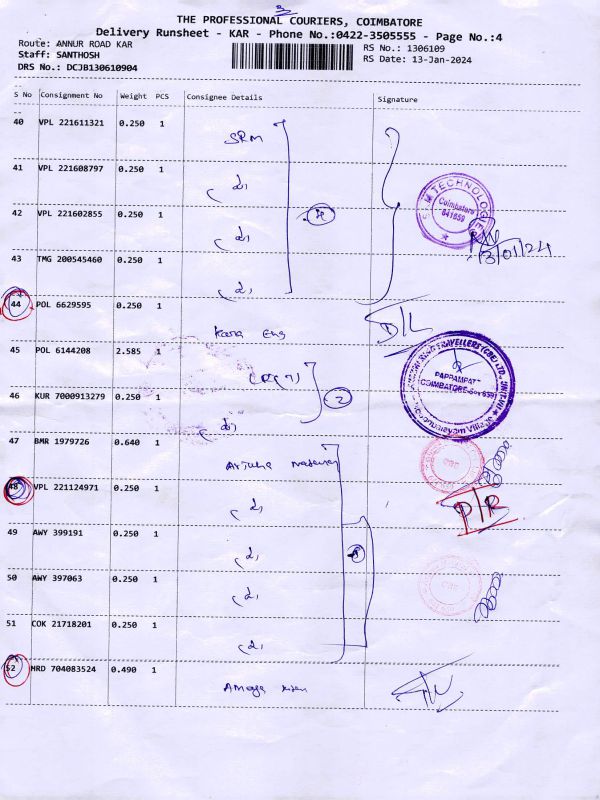 3
THE PROFESSIONAL COURIERS, COIMBATORE
Delivery Runsheet - KAR - Phone No.:0422-3505555 - Page No.:4
Route: ANNUR ROAD KAR
Staff: SANTHOSH
DRS No.: DCJB130610904
RS No.: 1306109
RS Date: 13-Jan-2024
S No Consignment No Weight PCS Consignee Details Signature
40 VPL 221611321 0.250 1 SRM
41 VPL 221608797 0.250 1
42 VPL 221602855 0.250 1
43 TMG 200545460 0.250 1
TECHNOLOGIES
Coimbatore
641659
13/01/24
44 POL 6629595 0.250 1 Kana Eng D/L
45 POL 6144208 2.585 1
46 KUR 7000913279 0.250 1
2
PAPPAMPATTI
47 BMR 1979726 0.640 1
48 VPL 221124971 0.250 1 D/R
49 AWY 399191 0.250 1
50 AWY 397063 0.250 1
51 COK 21718201 0.250 1
52 MRD 704083524 0.490 1